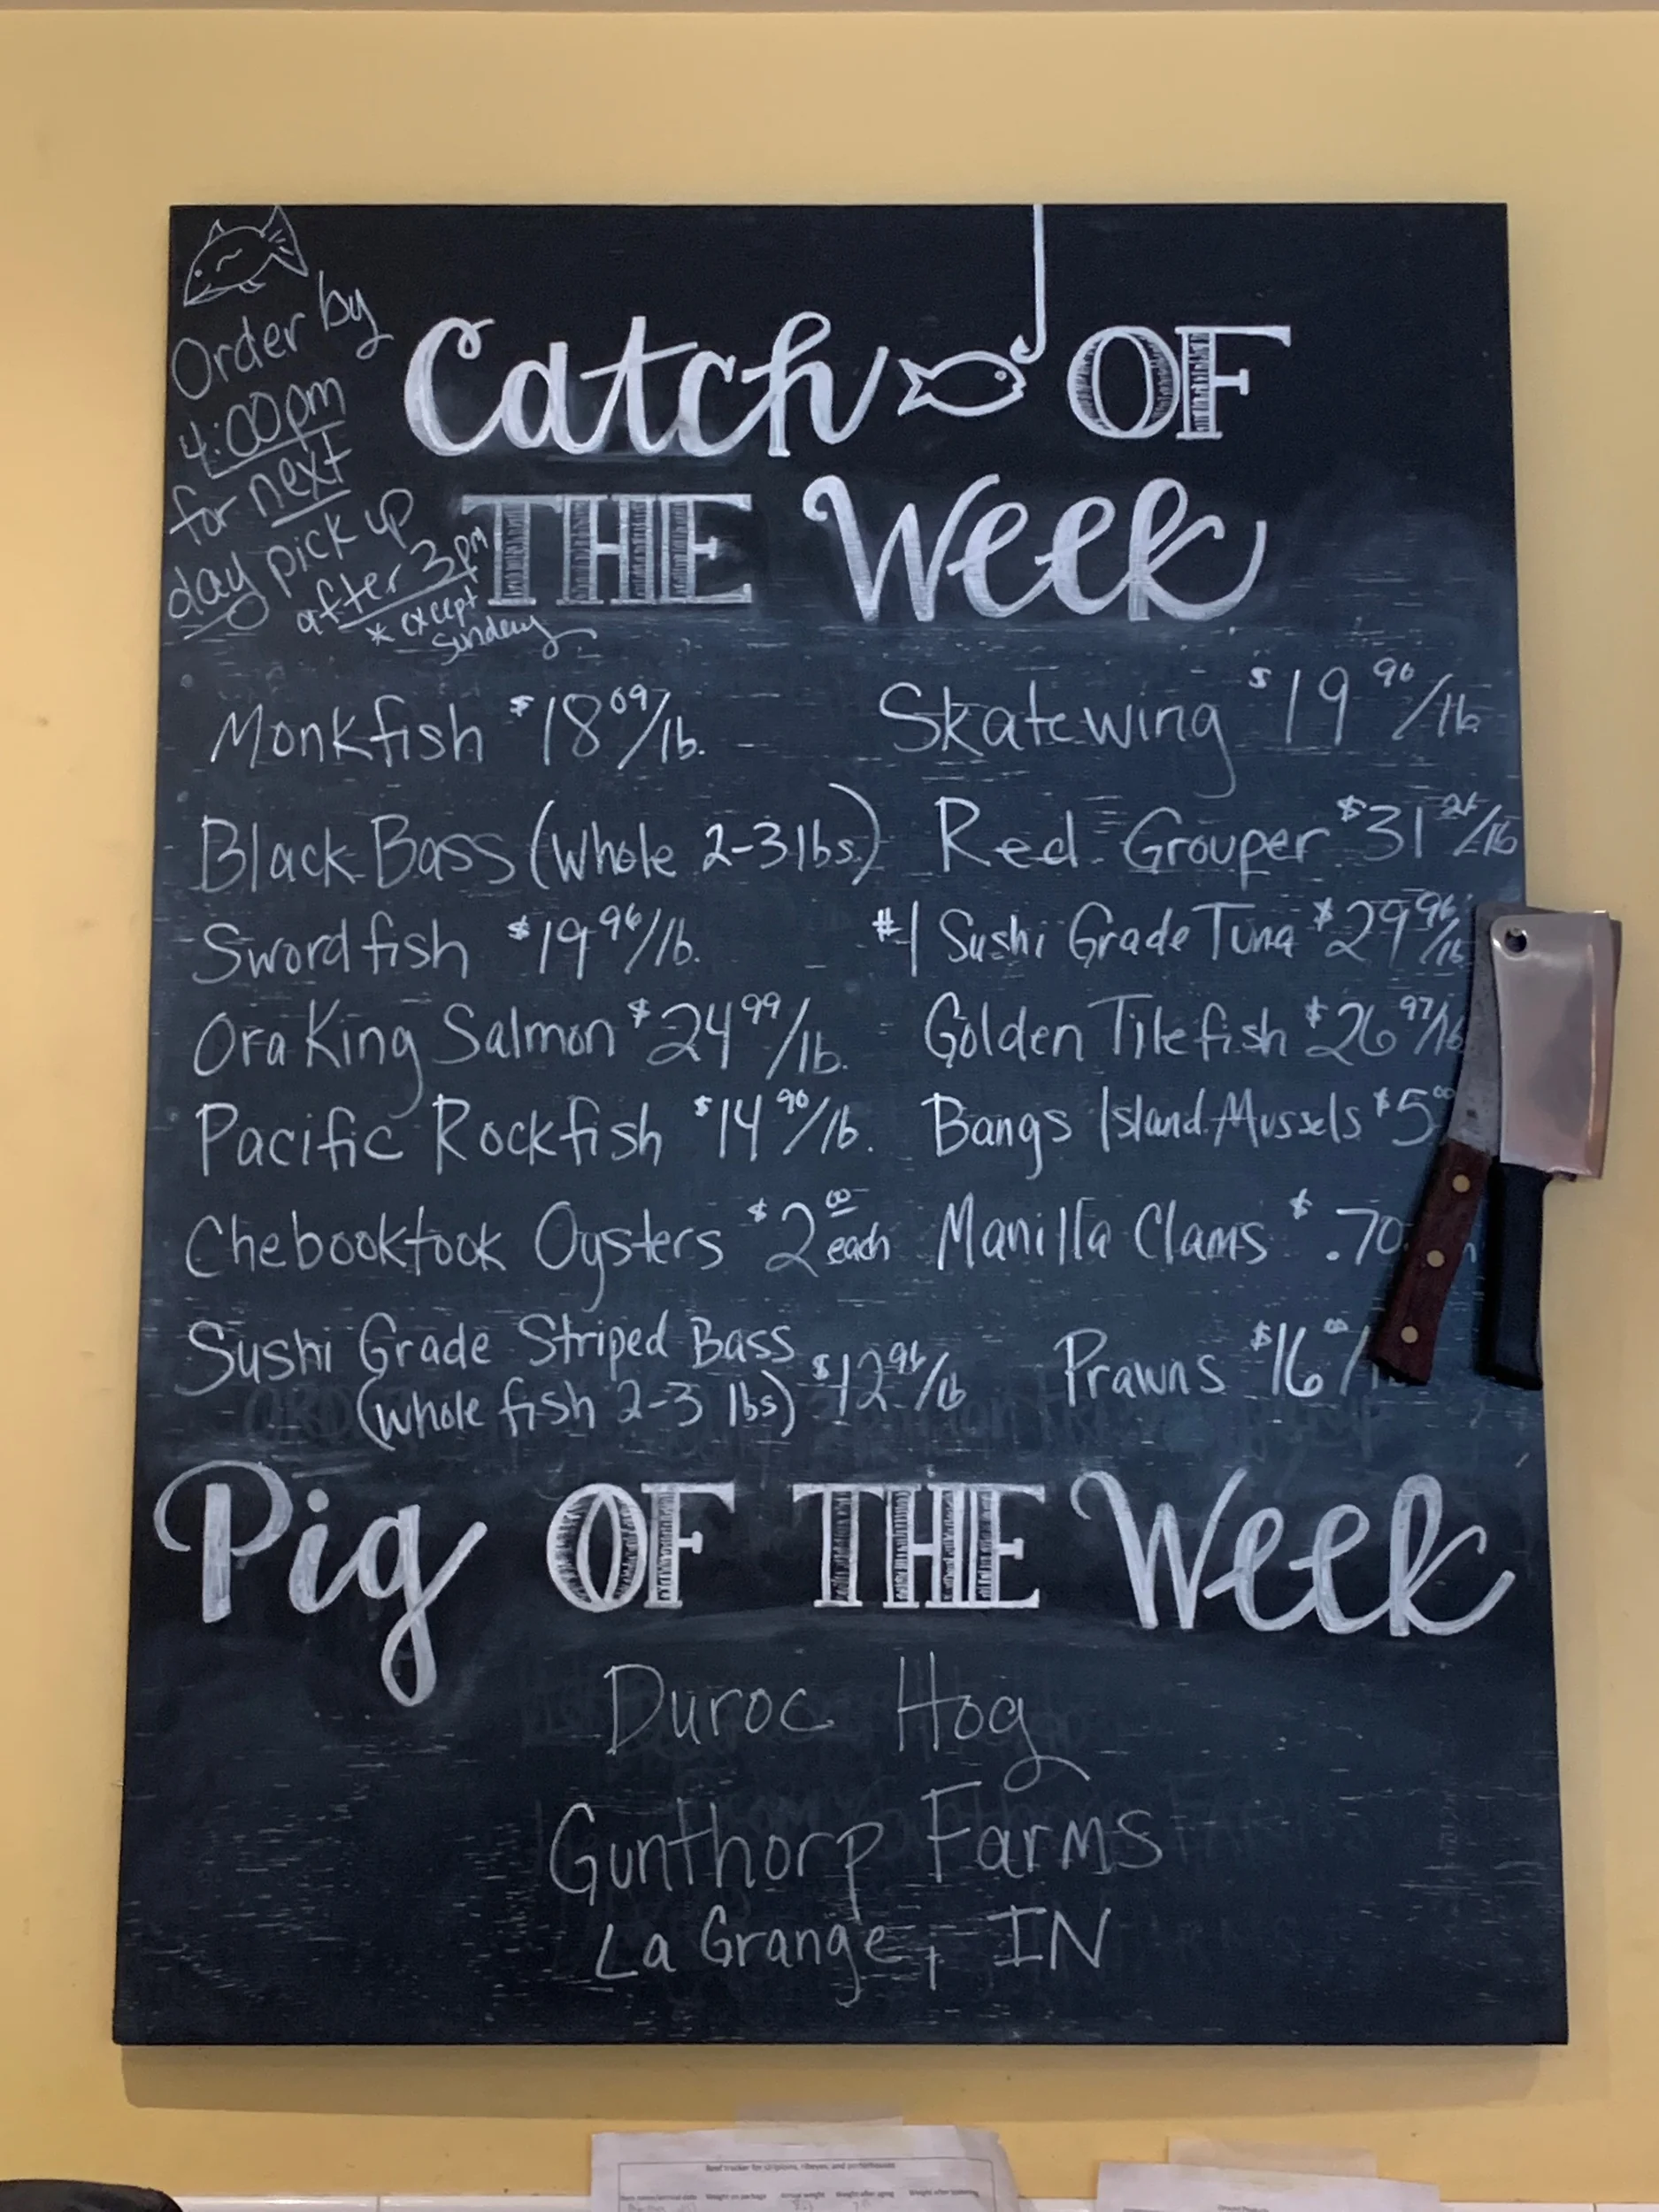 Order by
4:00pm
for next
day pick up
after 3pm
* except
Sunday
Catch OF
THE Week
Monkfish $18.09/lb.
Skatewing $19 96/lb
Black Bass (whole 2-3 lbs.)
Red Grouper $31 /lb
Swordfish $19 96/lb.
#1 Sushi Grade Tuna $29 96/lb
Ora King Salmon $24 99/lb.
Golden Tilefish $26 97/lb
Pacific Rockfish $14 90/lb.
Bangs Island Mussels $5 00
Chebooktook Oysters $2 00 each
Manilla Clams $.70
Sushi Grade Striped Bass
(whole fish 2-3 lbs) $12 96/lb
Prawns $16 00/
Pig OF THE Week
Duroc Hog
Gunthorp Farms
La Grange, IN
Beef tracker for striploins, ribeyes, and porterhouses
Weight on package Actual weight Weight after aging